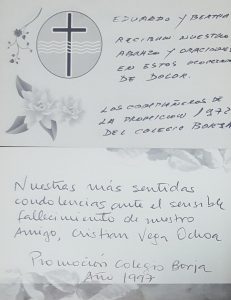 EDUARDO Y BERTHA
RECIBAN NUESTRO
ABRAZO Y ORACIONES
EN ESTOS MOMENTOS
DE DOLOR.
LOS COMPAÑEROS DE
LA PROMOCION 1972
DEL COLEGIO BORJA
Nuestras más sentidas
condolencias ante el sensible
fallecimiento de nuestro
Amigo, Cristian Vega Ochoa
Promoción Colegio Borja
Año 1997